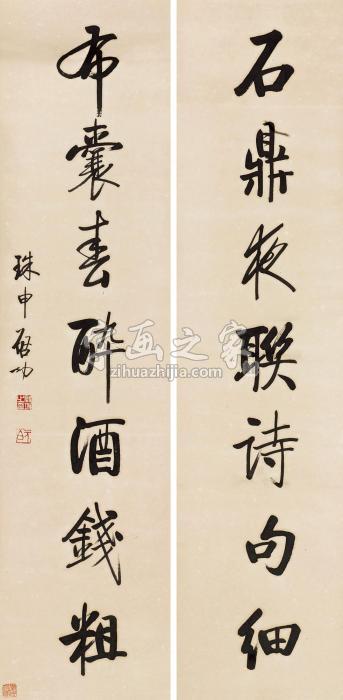 石鼎夜联诗句细
布囊春醉酒錢粗
珠申启功
字画之家
zihuazhijia.com